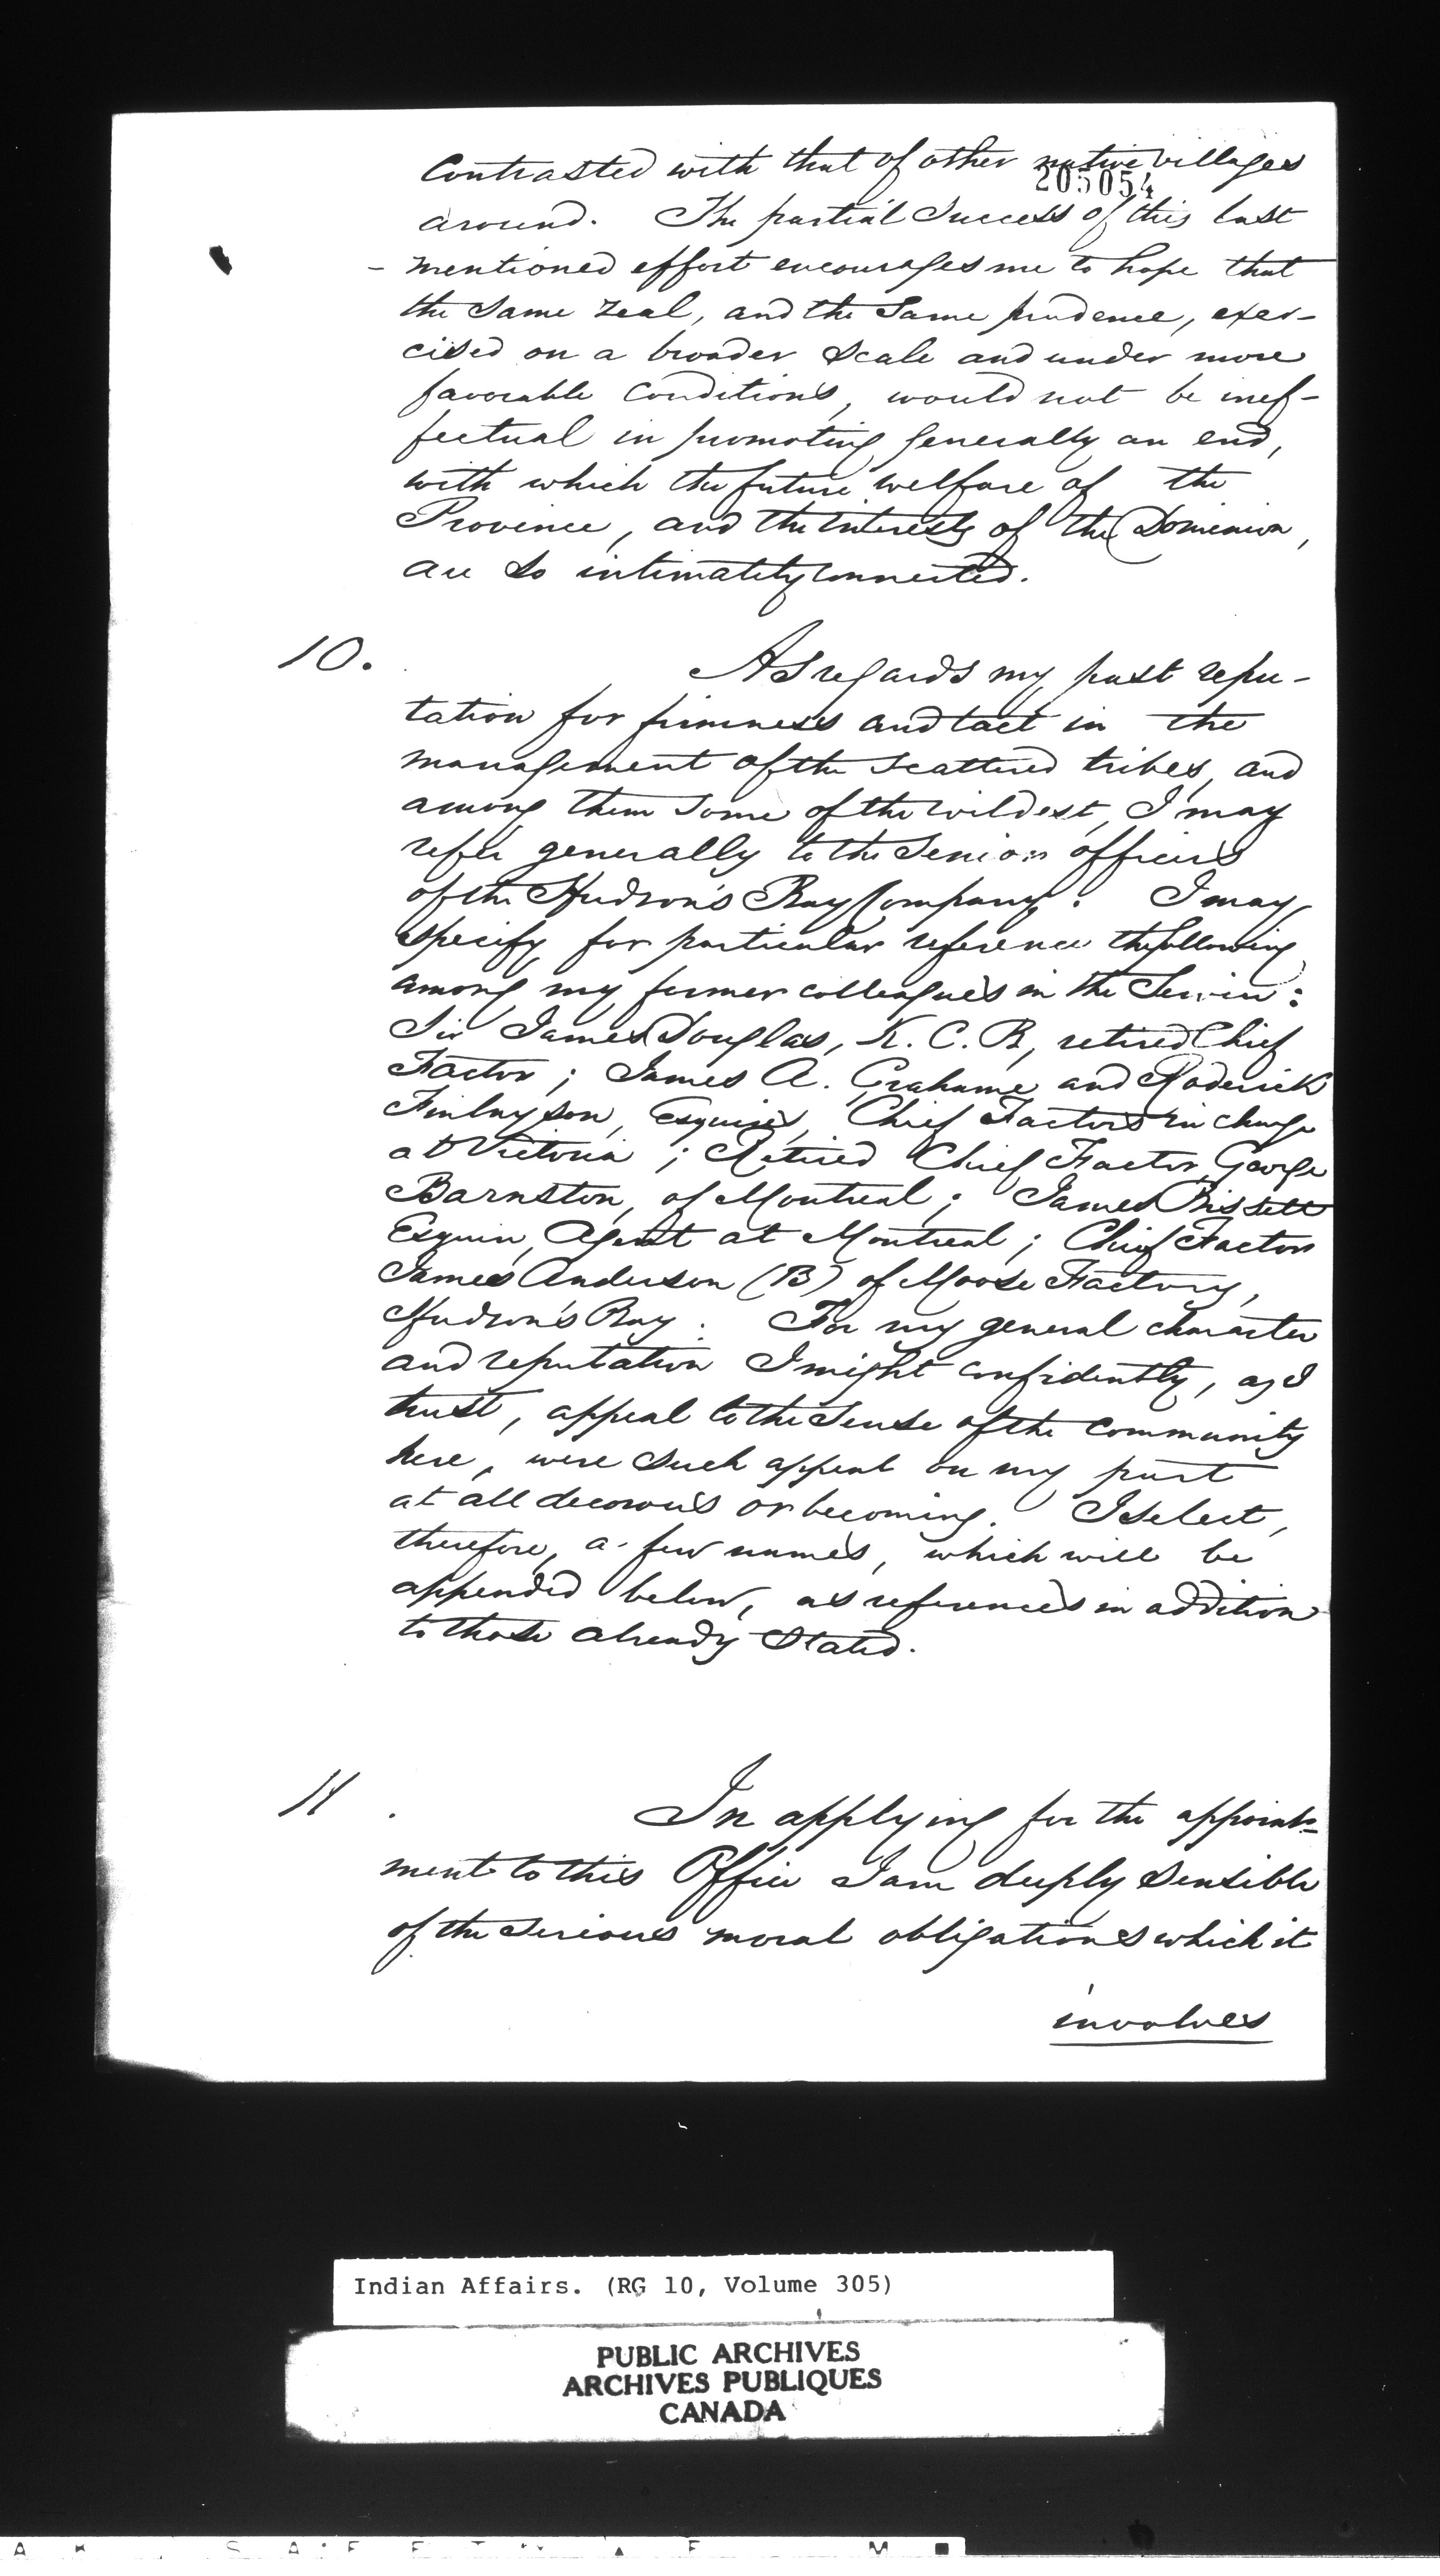 contrasted with that of other native villages
205054
around. The partial success of this last
- mentioned effort encourages me to hope that
the same zeal, and the same prudence, exer-
cised on a broader scale and under more
favorable conditions, would not be inef-
fectual in promoting generally an end,
with which the future welfare of the
Province, and the interests of the Dominion,
are so intimately connected.
10. As regards my past repu-
tation for firmness and tact in the
management of the scattered tribes, and
among them some of the wildest, I may
refer generally to the Senior officers
of the Hudson's Bay Company. I may
specify for particular reference the following
among my former colleagues in the Service:
Sir James Douglas, K. C. B, retired Chief
Factor; James A. Grahame and Roderick
Finlayson, Esquires, Chief Factors in charge
at Victoria; Retired Chief Factor George
Barnston, of Montreal; James Bissett
Esquire, Agent at Montreal; Chief Factor
James Anderson (B) of Moose Factory,
Hudson's Bay. For my general character
and reputation I might confidently, as I
trust, appeal to the sense of the community
here, were such appeal on my part
at all decorous or becoming. I select,
therefore, a few names, which will be
appended below, as references in addition
to those already stated.
11. In applying for the appoint-
ment to this Office I am deeply sensible
of the serious moral obligations which it
involves
Indian Affairs. (RG 10, Volume 305)
PUBLIC ARCHIVES
ARCHIVES PUBLIQUES
CANADA